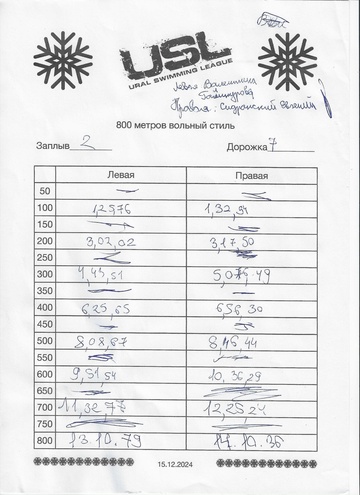 USL
URAL SWIMMING LEAGUE
Левая Валентина
Правая: Сидранский Евгений
800 метров вольный стиль
Заплыв 2 Дорожка 7
Левая Правая
50
100 1,25,76 1,32,94
150
200 3,02,02 3,17,50
250
300 4,43,51 5,07,49
350
400 6,25,65 6,56,30
450
500 8,08,87 8,46,44
550
600 9,51,54 10,36,29
650
700 11,32,77 12,25,24
750
800 13.10.79 14.10.36
15.12.2024